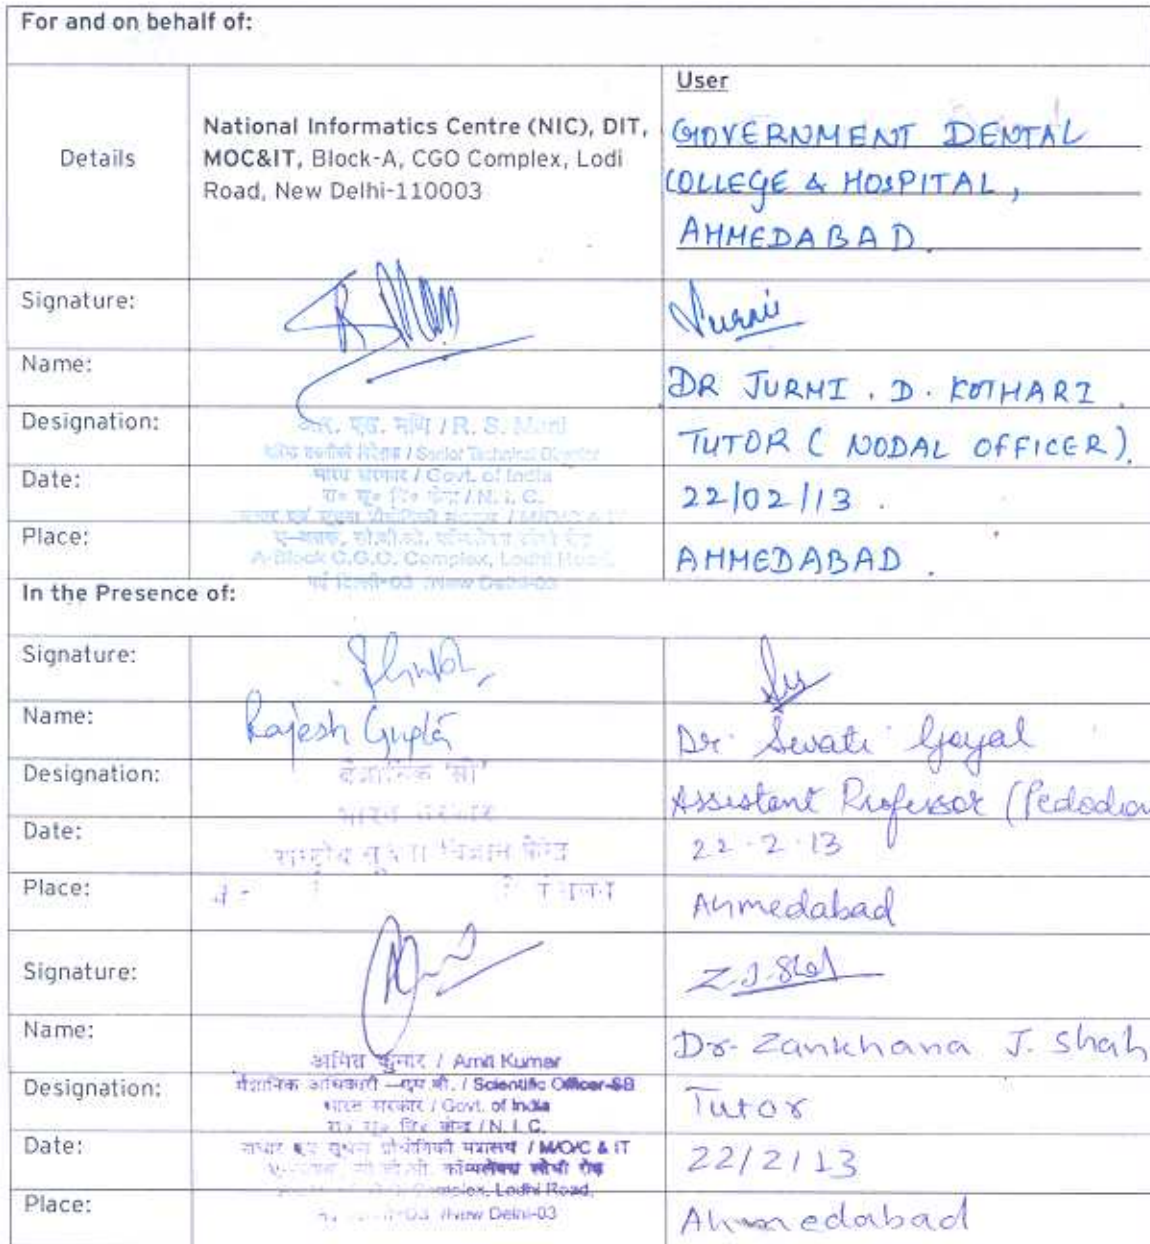 For and on behalf of:
Details
National Informatics Centre (NIC), DIT,
MOC&IT, Block-A, CGO Complex, Lodi
Road, New Delhi-110003
User
GOVERNMENT DENTAL
COLLEGE & HOSPITAL,
AHMEDABAD.
Signature:
Name:
DR JURMI . D. KOTHARI .
Designation:
आर. एस. मणि / R. S. Mani
/ Senior Technical Director
TUTOR ( NODAL OFFICER).
Date:
भारत सरकार / Govt. of India
/ N. I. C.
22/02/13 .
Place:
/ M/O/C & IT
A-Block C.G.O. Complex, Lodhi Road,
नई दिल्ली-03 /New Delhi-03
AHMEDABAD .
In the Presence of:
Signature:
Name:
Rajesh Gupta
Dr. Swati Goyal
Designation:
वैज्ञानिक 'सी'
Assistant Professor (Pedodon
Date:
भारत सरकार
राष्ट्रीय सूचना विज्ञान केन्द्र
22.2.13
Place:
Ahmedabad
Signature:
Z.J.Shah
Name:
Dr. Zankhana J. Shah
अमित कुमार / Amit Kumar
Designation:
वैज्ञानिक अधिकारी -एस.बी. / Scientific Officer-SB
भारत सरकार / Govt. of India
/ N. I. C.
Tutor
Date:
/ M/O/C & IT
कॉम्पलेक्स लोधी रोड
22/2/13
Place:
Complex, Lodhi Road,
/New Delhi-03
Ahmedabad